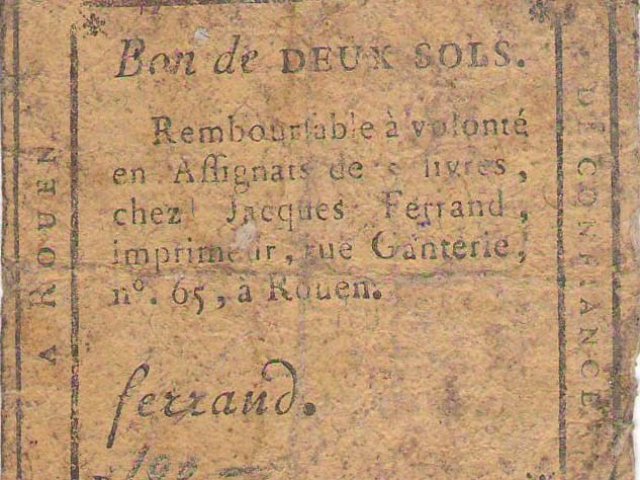 Bon de DEUX SOLS.
Remboursable à volonté
en Assignats de livres,
chez Jacques Ferrand,
imprimeur, rue Ganterie,
n°. 65, à Rouen.
ferrand.
A ROUEN
DE CONFIANCE